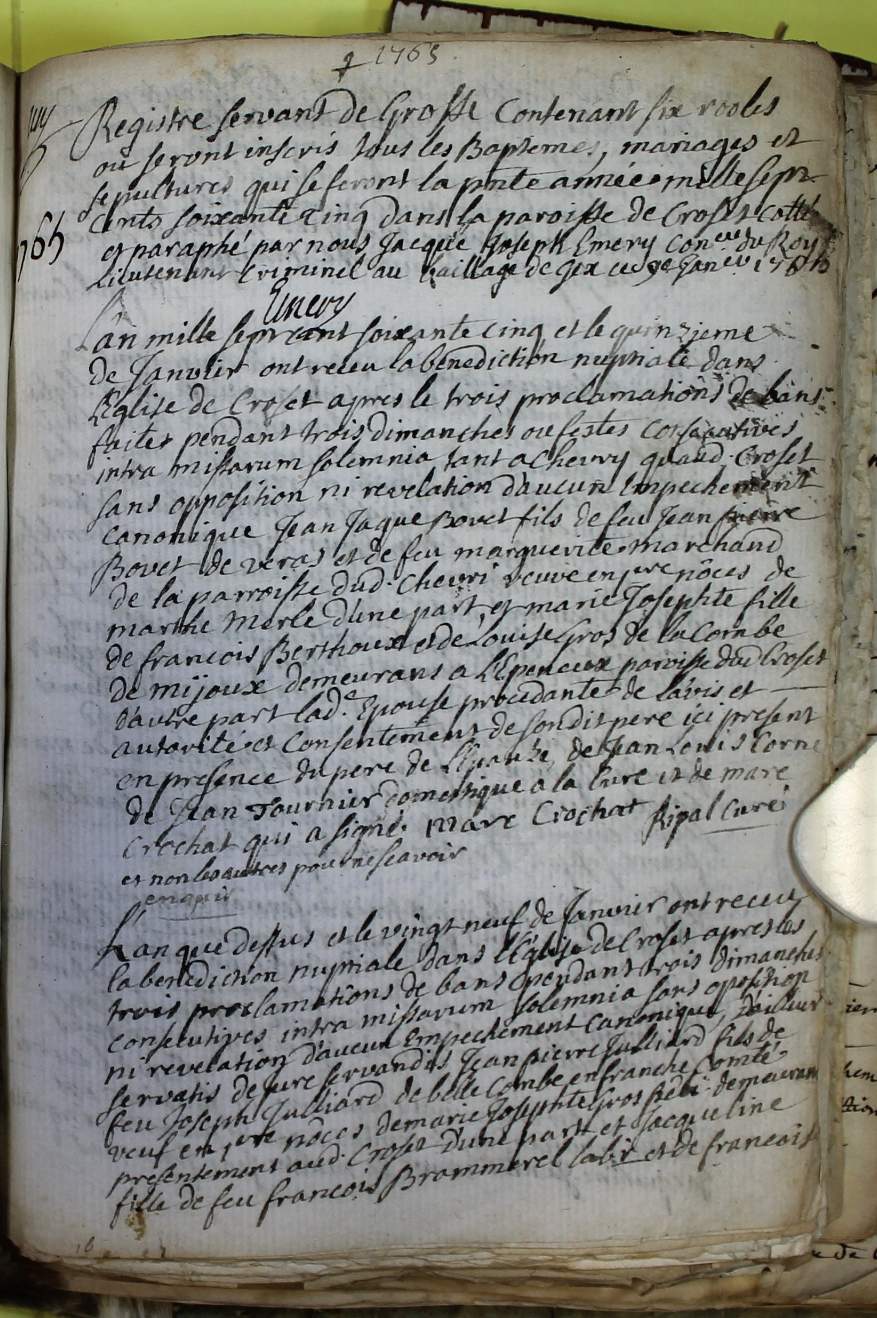 1765
Registre servant de Grosse Contenant six rooles
ou seront inscris tous les Baptemes, mariages et
sepultures qui se feront la pnte année mille sept
cents soixante cinq dans la paroisse de Croset Cotté
et paraphé par nous Jacque Joseph Emery Coner du Roy
Lieutenant Criminel au baillage de Gex ce 9e Janer 1765
Emery
1765
L'an mille sept cent soixante cinq et le quinzieme
de Janvier ont receu la benediction nuptiale dans
l'Eglise de Croset apres le trois proclamations de bans
faites pendant trois dimanches ou festes Consecutives
intra missarum solemnia tant a Chevry qu'aud. Croset
sans opposition ni revelation d'aucun Empechement
canonique Jean Jaque Bovet fils de feu Jean pierre
Bovet de veras et de feu marguerite marchand
de la parroisse dud. Chevri veuve en 1ere nôces de
marthe Merle d'une part et marie Josephte fille
de francois Berthoux et de Louise Gros de la Combe
de mijoux demeurans a L'Epeneux paroisse dud Croset
d'autre part lade Epouse procedante de l'avis et
autorité et Consentement de sondit pere ici present
en presence du pere de L'Epouse, de Jean Louis Corne
de Jean Tournier domestique a la Cure et de marc
Crochat qui a signé. Marc Crochat Ripal Curé
et non les autres pour ne scavoir
enquis
L'an que dessus et le vingt neuf de Janvier ont receu
la benediction nuptiale dans l'Eglise de Croset apres les
trois proclamations de bans pendant trois dimanches
consecutives intra missarum solemnia sans oposition
ni revelation d'aucun Empechement canonique, d'ailleur
servatis de jure servandis Jean pierre Julliard fils de
feu Joseph Julliard de belle Combe en franche Comté,
veuf en 1ere nôces de marie Josephte Gros demeurant
presentement aud. Croset d'une part et Jacqueline
fille de feu francois Brammerel et de francoise